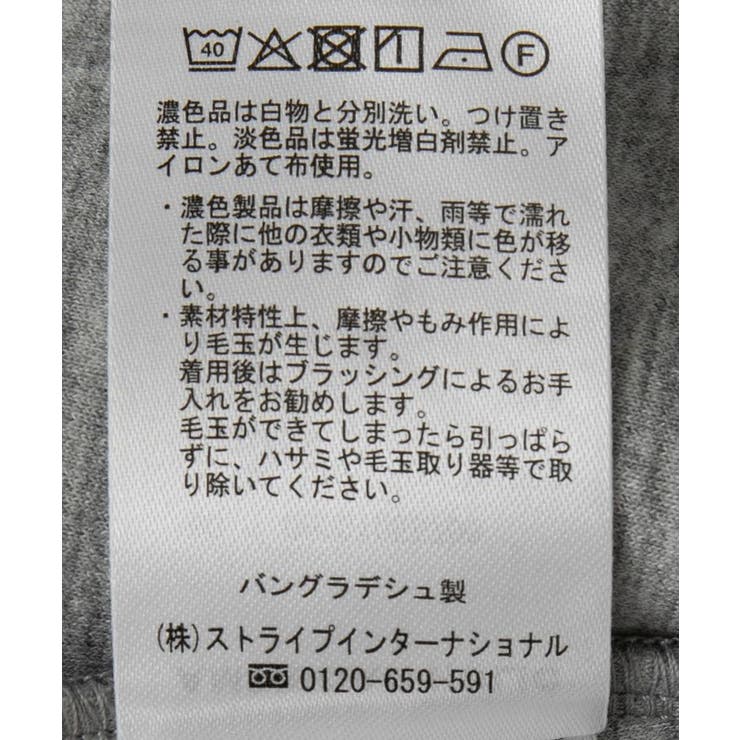 40 F
濃色品は白物と分別洗い。つけ置き
禁止。淡色品は蛍光増白剤禁止。ア
イロンあて布使用。
・濃色製品は摩擦や汗、雨等で濡れ
た際に他の衣類や小物類に色が移
る事がありますのでご注意くださ
い。
・素材特性上、摩擦やもみ作用によ
り毛玉が生じます。
着用後はブラッシングによるお手
入れをお勧めします。
毛玉ができてしまったら引っぱら
ずに、ハサミや毛玉取り器等で取
り除いてください。
バングラデシュ製
(株)ストライプインターナショナル
0120-659-591